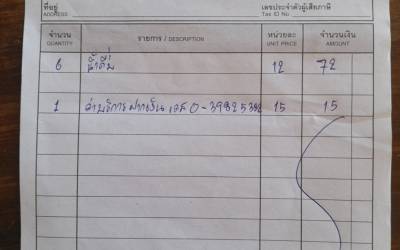 ที่อยู่ เลขประจำตัวผู้เสียภาษี
ADDRESS Tax ID No
จำนวน รายการ / DESCRIPTION หน่วยละ จำนวนเงิน
QUANTITY UNIT PRICE AMOUNT
6 น้ำดื่ม 12 72
1 ค่าบริการฝากเงิน 15 15